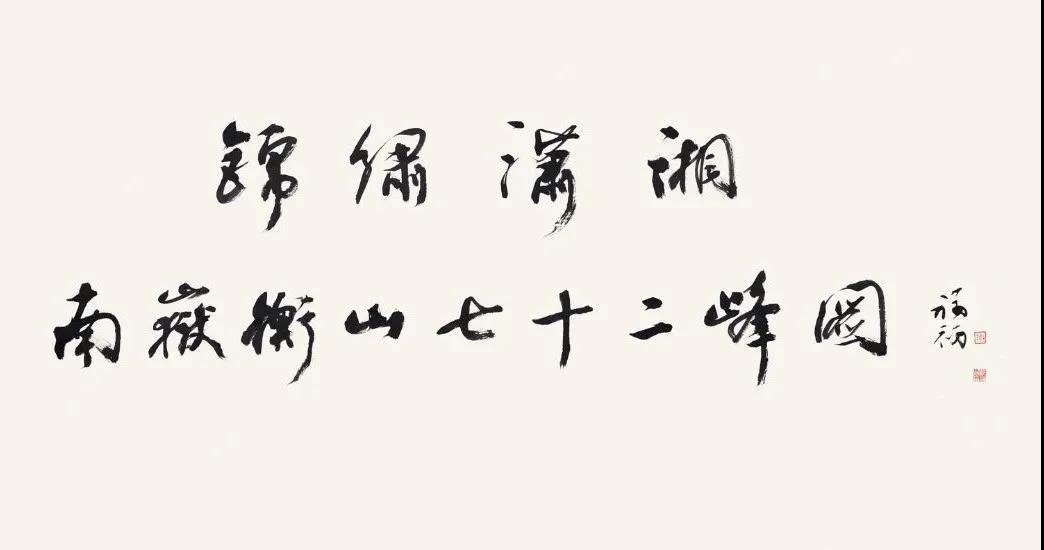 錦繡瀟湘
南嶽衡山七十二峰圖
福初